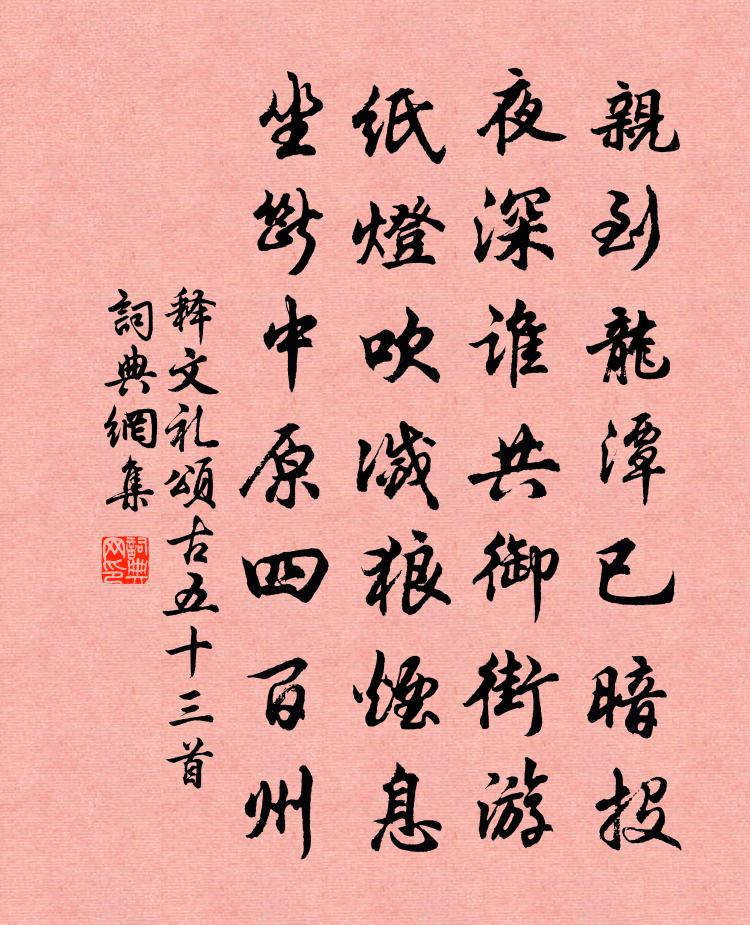 親到龍潭已暗投
夜深谁共御街游
紙燈吹滅狼煙息
坐斷中原四百州
释文礼頌古五十三首
詞典網集
詞典網印